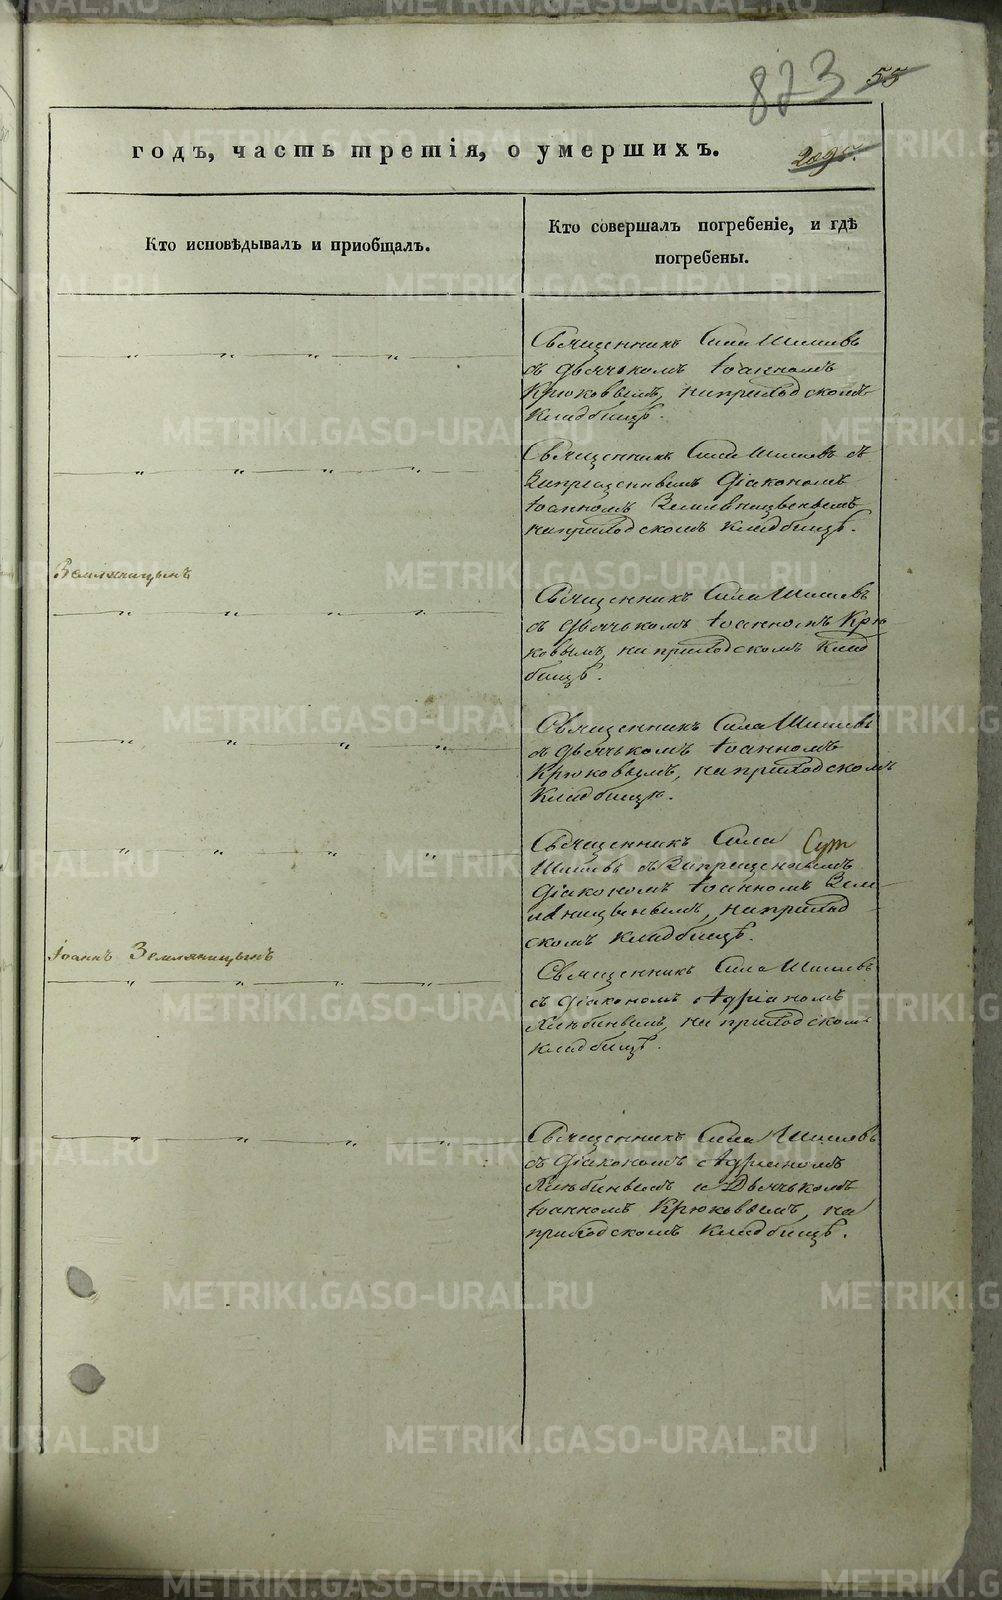 823 55
годъ, часть третія, о умершихъ.
Кто исповѣдывалъ и приобщалъ.
Кто совершалъ погребеніе, и гдѣ
погребены.
Священникъ Сила Шишевъ
съ дьячькомъ Іоанномъ
Крюковымъ, на приходскомъ
кладбищѣ.
Священникъ Сила Шишевъ съ
Запрещеннымъ Діакономъ
Іоанномъ
на приходскомъ кладбищѣ.
Земляницынъ
Священникъ Сила Шишевъ
съ дьячькомъ Іоанномъ Крю
ковымъ, на приходскомъ клад
бищѣ.
Священникъ Сила Шишевъ
съ дьячькомъ Іоанномъ
Крюковымъ, на приходскомъ
кладбищѣ.
Священникъ Сила
Шишевъ съ Запрещеннымъ
Діакономъ Іоанномъ Зем
на приход
скомъ кладбищѣ.
Іоаннъ Земляницынъ
Священникъ Сила Шишевъ
съ Діакономъ Адріаномъ
на приходскомъ
кладбищѣ.
Священникъ Сила Шишевъ
съ Діакономъ Адріаномъ
и Дьячькомъ
Іоанномъ Крюковымъ, на
приходскомъ кладбищѣ.
METRIKI.GASO-URAL.RU